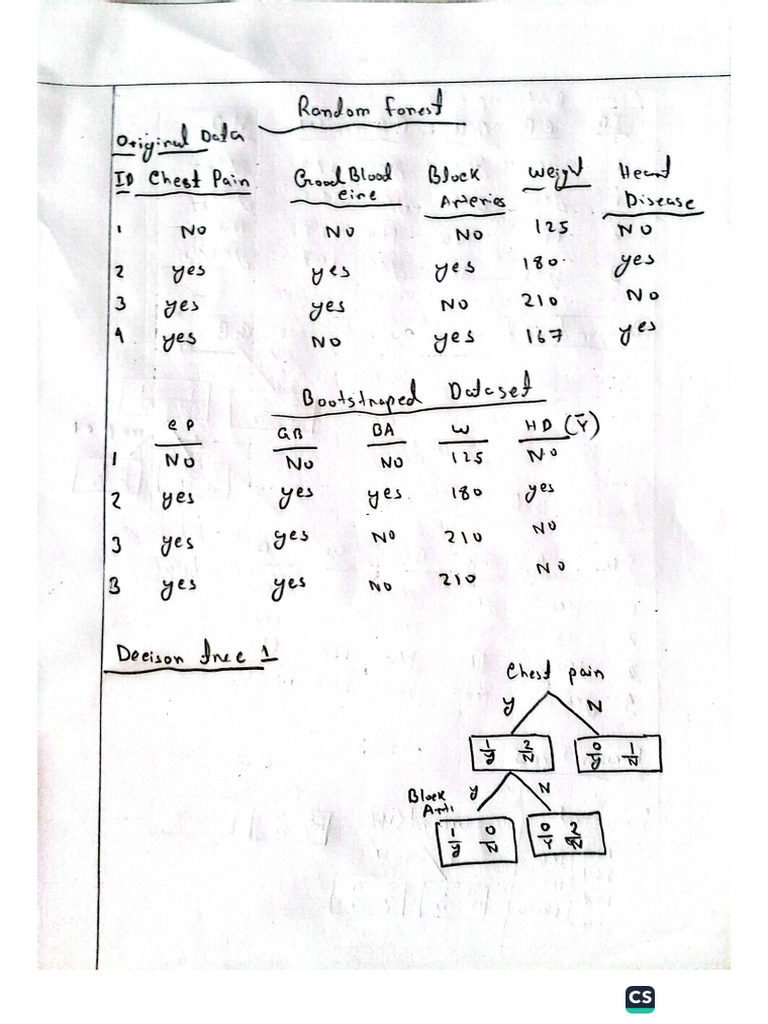 Random Forest
Original Data
ID Chest Pain Good Blood Circ Block Arteries Weight Heart Disease
1 No No No 125 No
2 yes yes yes 180 yes
3 yes yes No 210 No
4 yes No yes 167 yes
Bootstraped Dataset
CP GB BA W HD (Y)
1 No No No 125 No
2 yes yes yes 180 yes
3 yes yes No 210 No
3 yes yes No 210 No
Decison tree 1
Chest pain
Y N
1/y 2/N 0/y 1/N
Block Arti Y N
1/y 0/N 0/Y 2/N
CS